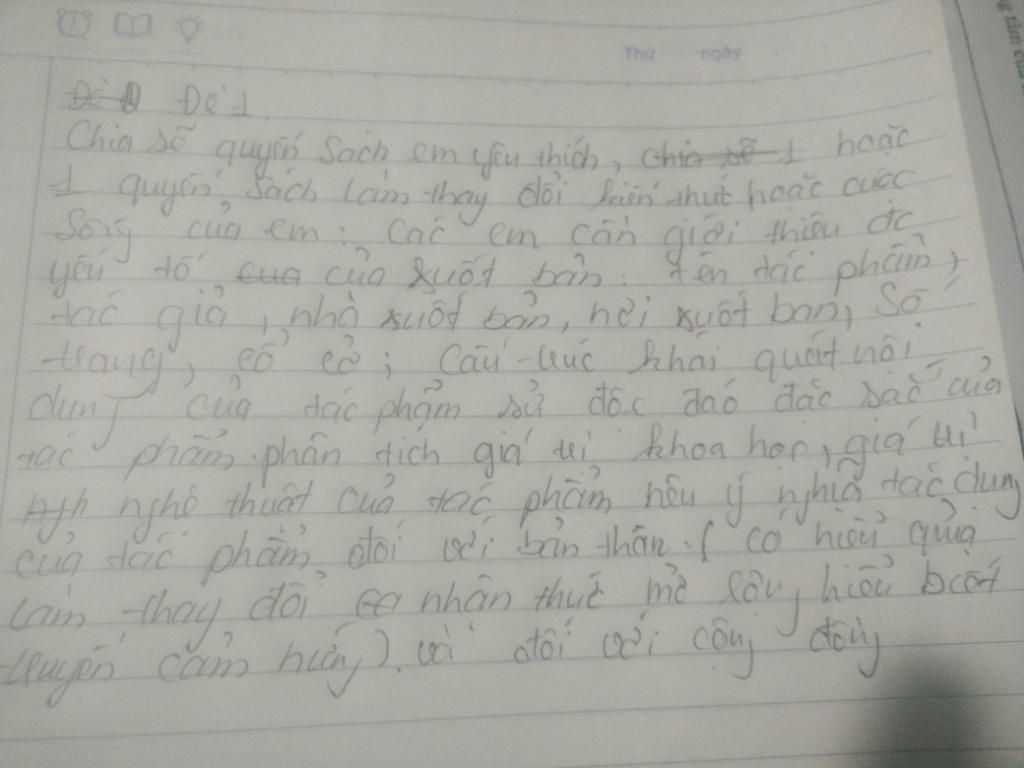 Thứ ngày
Đề 1
Chia sẽ quyển sách em yêu thích, chia sẽ 1 hoặc
1 quyển sách làm thay đổi kiến thức hoặc cuộc
sống của em: Các em cần giới thiệu đc
yếu tố cua của xuất bản: tên tác phẩm,
tác giả, nhà xuất bản, nơi xuất bản, số
trang, cỡ; cấu trúc khái quát nội
dung của tác phẩm sử độc đáo đặc sắc của
tác phẩm. phân tích giá trị khoa học, giá trị
nghệ thuật của tác phẩm nêu ý nghĩa tác dụng
của tác phẩm đối với bản thân. (có hiểu quả
làm thay đổi nhận thức mở sâu, hiểu biết
truyền cảm hứng). và đối với cộng đồng